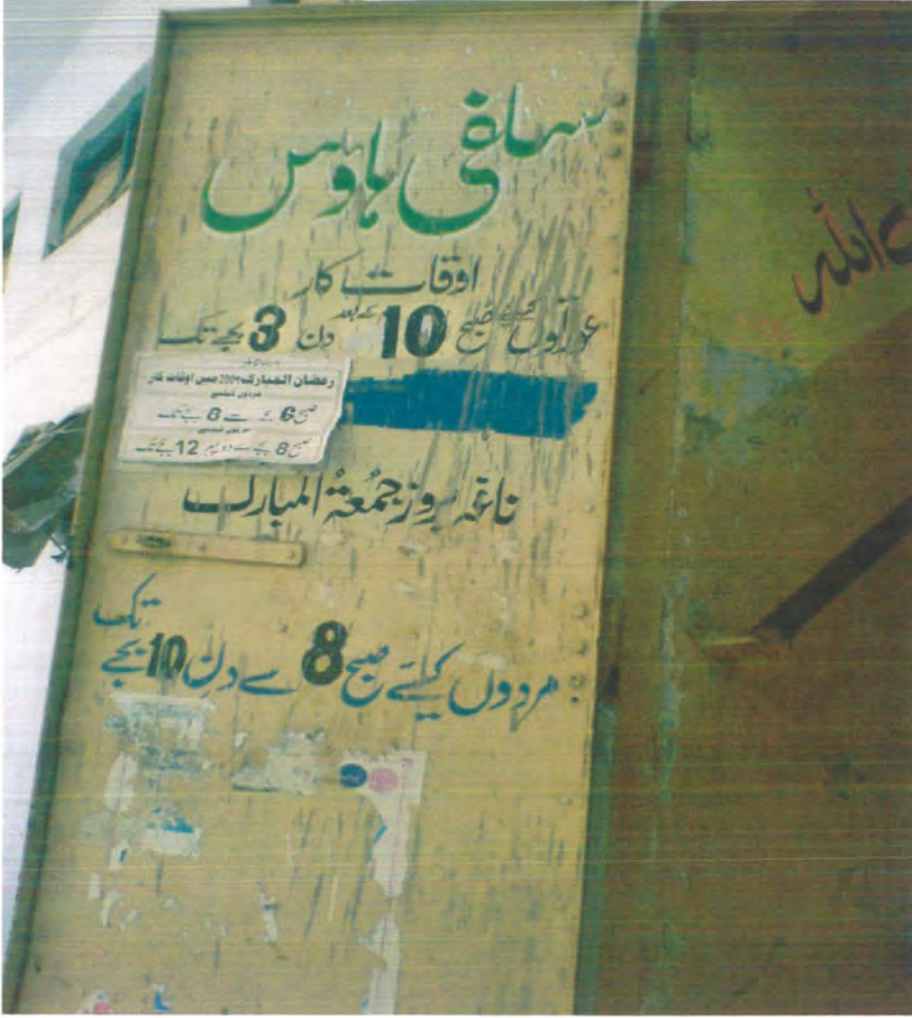 سلفی ہاوس
اوقات کار
عورتوں کیلئے صبح 10 کے بعد دن 3 بجے تک
رمضان المبارک 2009 میں اوقات کار
مردوں کیلئے
صبح 6 بجے سے 8 بجے تک
عورتوں کیلئے
صبح 8 بجے سے دوپہر 12 بجے تک
ناغہ بروز جمعۃ المبارک
تک
مردوں کیلئے صبح 8 سے دن 10 بجے